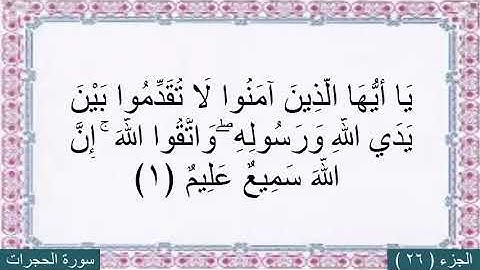 يَا أَيُّهَا الَّذِينَ آمَنُوا لَا تُقَدِّمُوا بَيْنَ
يَدَيِ اللَّهِ وَرَسُولِهِ ۖ وَاتَّقُوا اللَّهَ ۚ إِنَّ
اللَّهَ سَمِيعٌ عَلِيمٌ (١)
الجزء ( ٢٦ )
سورة الحجرات